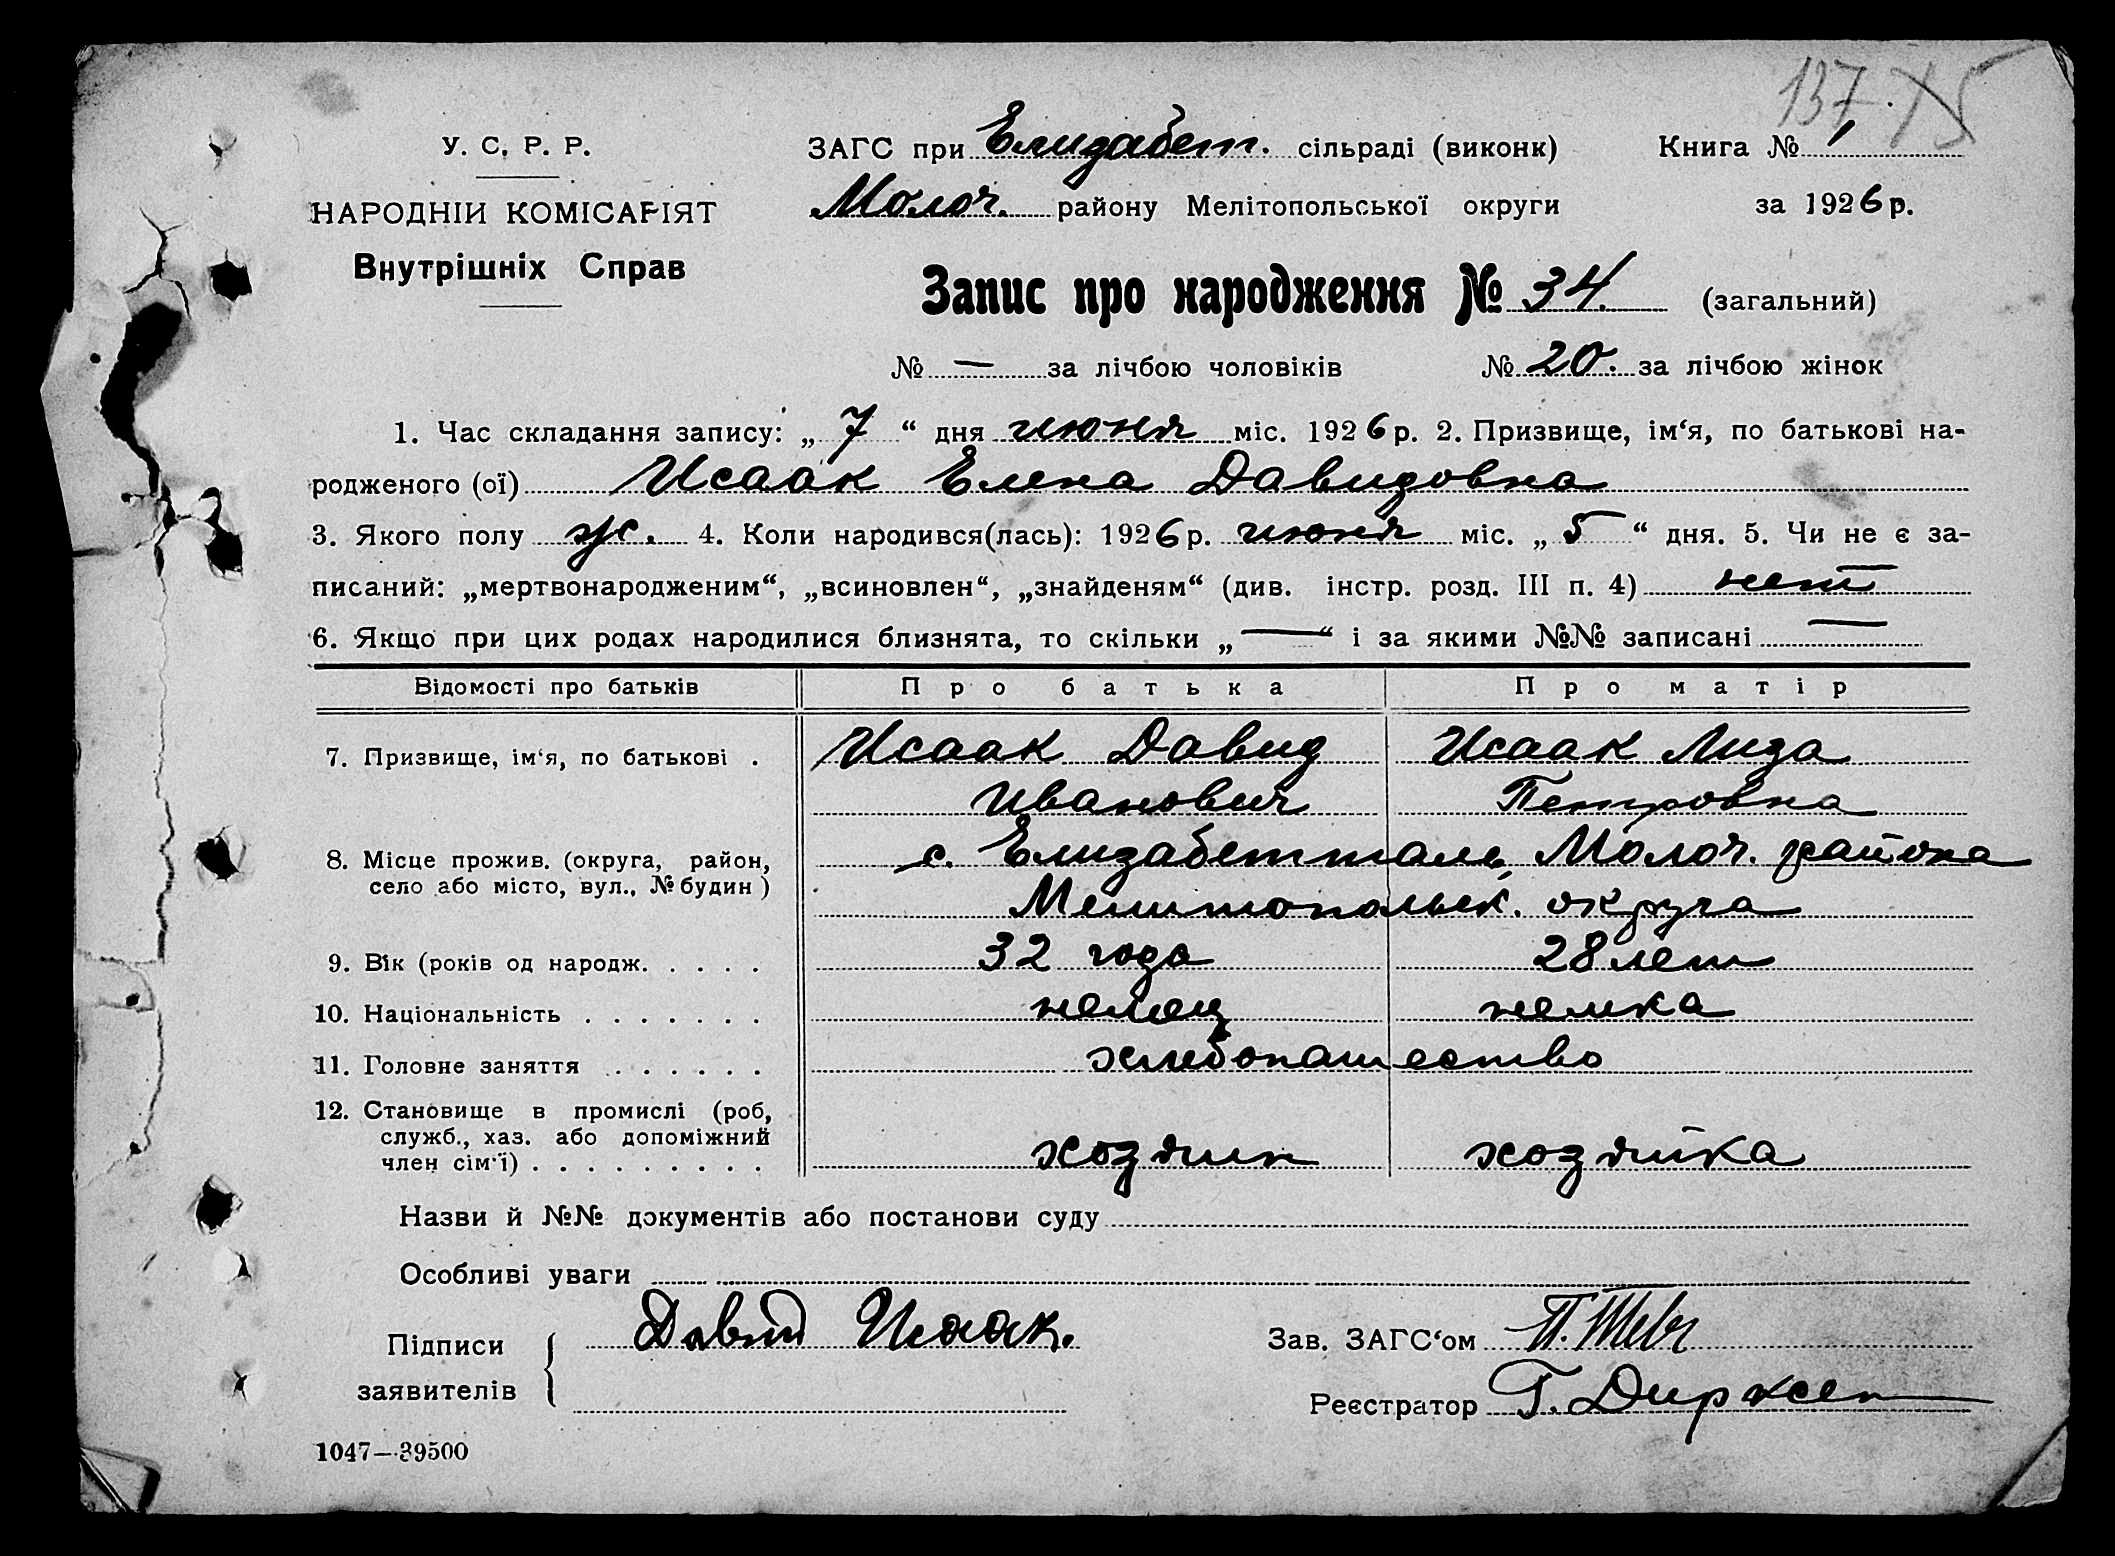 137. 75
У. С. Р. Р.
НАРОДНІЙ КОМІСАРІЯТ
Внутрішніх Справ
ЗАГС при Елизабет. сільраді (виконк)
Книга № 1
Молоч. району Мелітопольської округи
за 1926 р.
Запис про народження № 34. (загальний)
№ — за лічбою чоловіків № 20. за лічбою жінок
1. Час складання запису: „ 7 “ дня июня міс. 1926 р. 2. Призвище, ім‘я, по батькові на-
родженого (ої) Исаак Елена Давидовна
3. Якого полу ж. 4. Коли народився(лась): 1926 р. июня міс. „ 5 “ дня. 5. Чи не є за-
писаний: „мертвонародженим“, „всиновлен“, „знайденям“ (див. інстр. розд. III п. 4) нет
6. Якщо при цих родах народилися близнята, то скільки „ — “ і за якими №№ записані —
Відомості про батьків Про батька Про матір
7. Призвище, ім‘я, по батькові . Исаак Давид Исаак Лиза
Иванович Петровна
8. Місце прожив. (округа, район, с. Елизабетталь Молоч. района
село або місто, вул., № будин )
Мелитопольск. округа
9. Вік (років од народж. . . . . 32 года 28 лет
10. Національність . . . . . . . немец немка
11. Головне заняття . . . . . . хлебопашество
12. Становище в промислі (роб,
служб., хаз. або допоміжний
член сім‘ї) . . . . . . . . . хозяин хозяйка
Назви й №№ документів або постанови суду
Особливі уваги
Підписи Давид Исаак.
заявителів
Зав. ЗАГС‘ом П.
Реєстратор Г. Дирксен
1047—39500